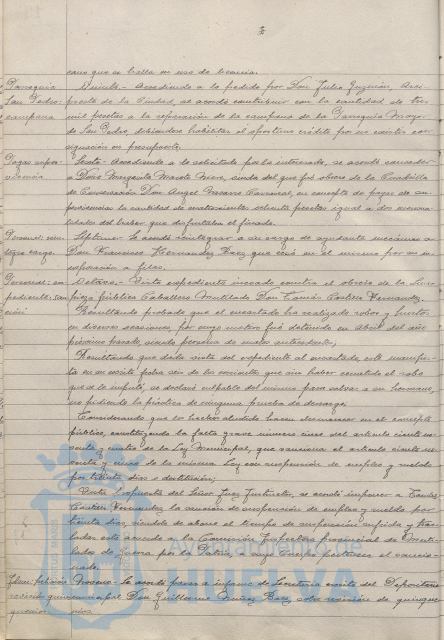 cano que se halla en uso de licencia.
Parroquia
San Pedro:
campana
Quinto.- Accediendo a lo pedido por Don Julio Guzmán, Arci-
preste de la Ciudad, se acordó contribuir con la cantidad de tres
mil pesetas a la reparación de la campana de la Parroquia Mayor
de San Pedro, debiendose habilitar el oportuno crédito por no existir con-
signación en presupuesto.
Pagas super-
vivencia
Sexto.- Accediendo a lo solicitado por la interesada, se acordó conceder
a Doña Margarita Maroto Nieve, viuda del que fué obrero de la Cuadrilla
de Conservación Don Angel Navarro Carrascal, en concepto de pagas de su-
pervivencia la cantidad de cuatrocientas ochenta pesetas igual a dos mensua-
lidades del haber que disfrutaba el finado.
Personal: rein-
tegro cargo.
Septimo.- Se acordó reintegrar a su cargo de ayudante mecánico a
Don Francisco Hernandez Baez que cesó en el mismo por su in-
corporación a filas.
Personal: ex-
pediente: san-
ción
Octavo.- Visto expediente incoado contra el obrero de la Lim-
pieza pública Caballero Mutilado Don Tomás Cortés Hernandez.
Resultando probado que el encartado ha realizado robos y hurtos
en diversas ocasiones, por cuyo motivo fué detenido en Abril del año
próximo pasado, siendo persona de malos antecedentes;
Resultando que dada vista del expediente al encartado, este manifies-
ta en escrito fecha seis de los corrientes que aún haber cometido el robo
que se le imputa, se declaró culpable del mismo para salvar a su hermano,
no pidiendo la práctica de ninguna prueba de descargo;
Considerando que los hechos aludidos hacen desmerecer en el concepto
público, constituyendo la falta grave número cinco del artículo ciento no-
venta y cuatro de la Ley Municipal, que sanciona el artículo ciento no-
venta y cinco de la misma Ley con suspensión de empleo y sueldo
por treinta dias o destitución;
Vista propuesta del Señor Juez Instructor, se acordó imponer a Tomás
Cortés Hernandez la sanción de suspensión de empleo y sueldo por
treinta dias, siendole de abono el tiempo de suspensión sufrida y tras-
ladar este acuerdo a la Comisión Inspectora provincial de Muti-
lados de Guerra por la Patria a cuyo cuerpo pertenece el sancio-
nado.
revisión quinquenios
Noveno.- Se acordó pasar a informe de Secretaria escrito del Depositario
municipal Don Guillermo Muñoz Baez sobre revisión de quinque-
nios.
Ayuntamiento de
HUELVA